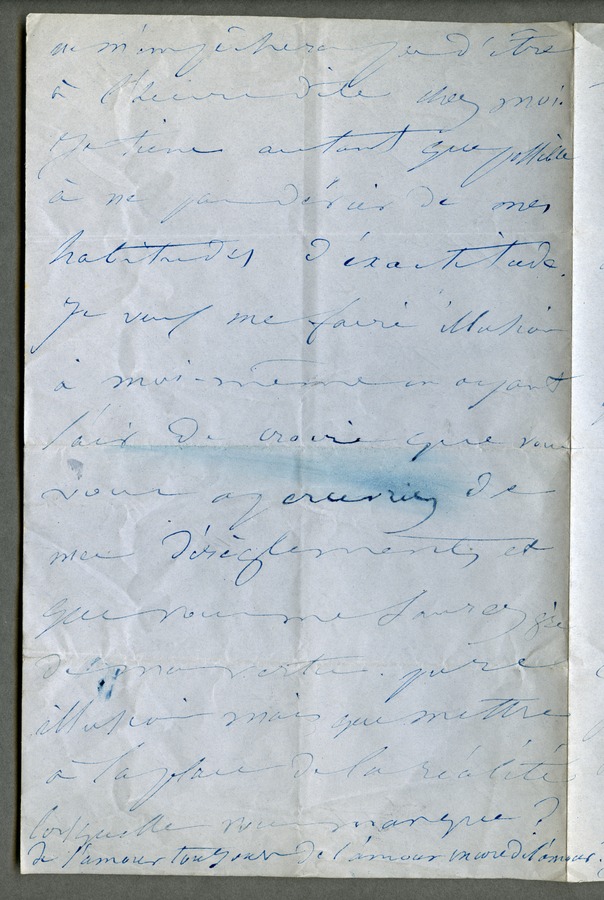 ne m'empêchera pas d'être
à l'heure dite chez moi.
Je tiens autant que possible
à ne pas dévier de mes
habitudes d'exactitude.
Je veux me faire illusion
à moi-même en ayant
l'air de croire que vous
vous apercevriez de
mes dérèglements et
que vous me saurez gré
de ma vertu. pure
illusion mais que mettre
à la place de la réalité
lorsqu'elle nous manque?
de l'amour toujours de l'amour encore de l'amour.